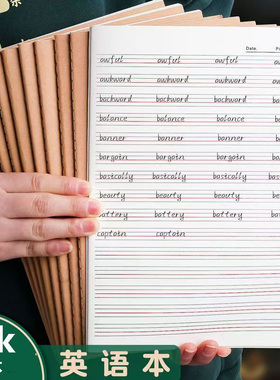 Date.
awful awful awful awful
awkward awkward awkward awkward
backward backward backward backward
balance balance balance balance
banner banner banner banner
bargain bargain bargain bargain
basically basically basically basically
beauty beauty beauty beauty
battery battery battery battery
captain captain
英语本